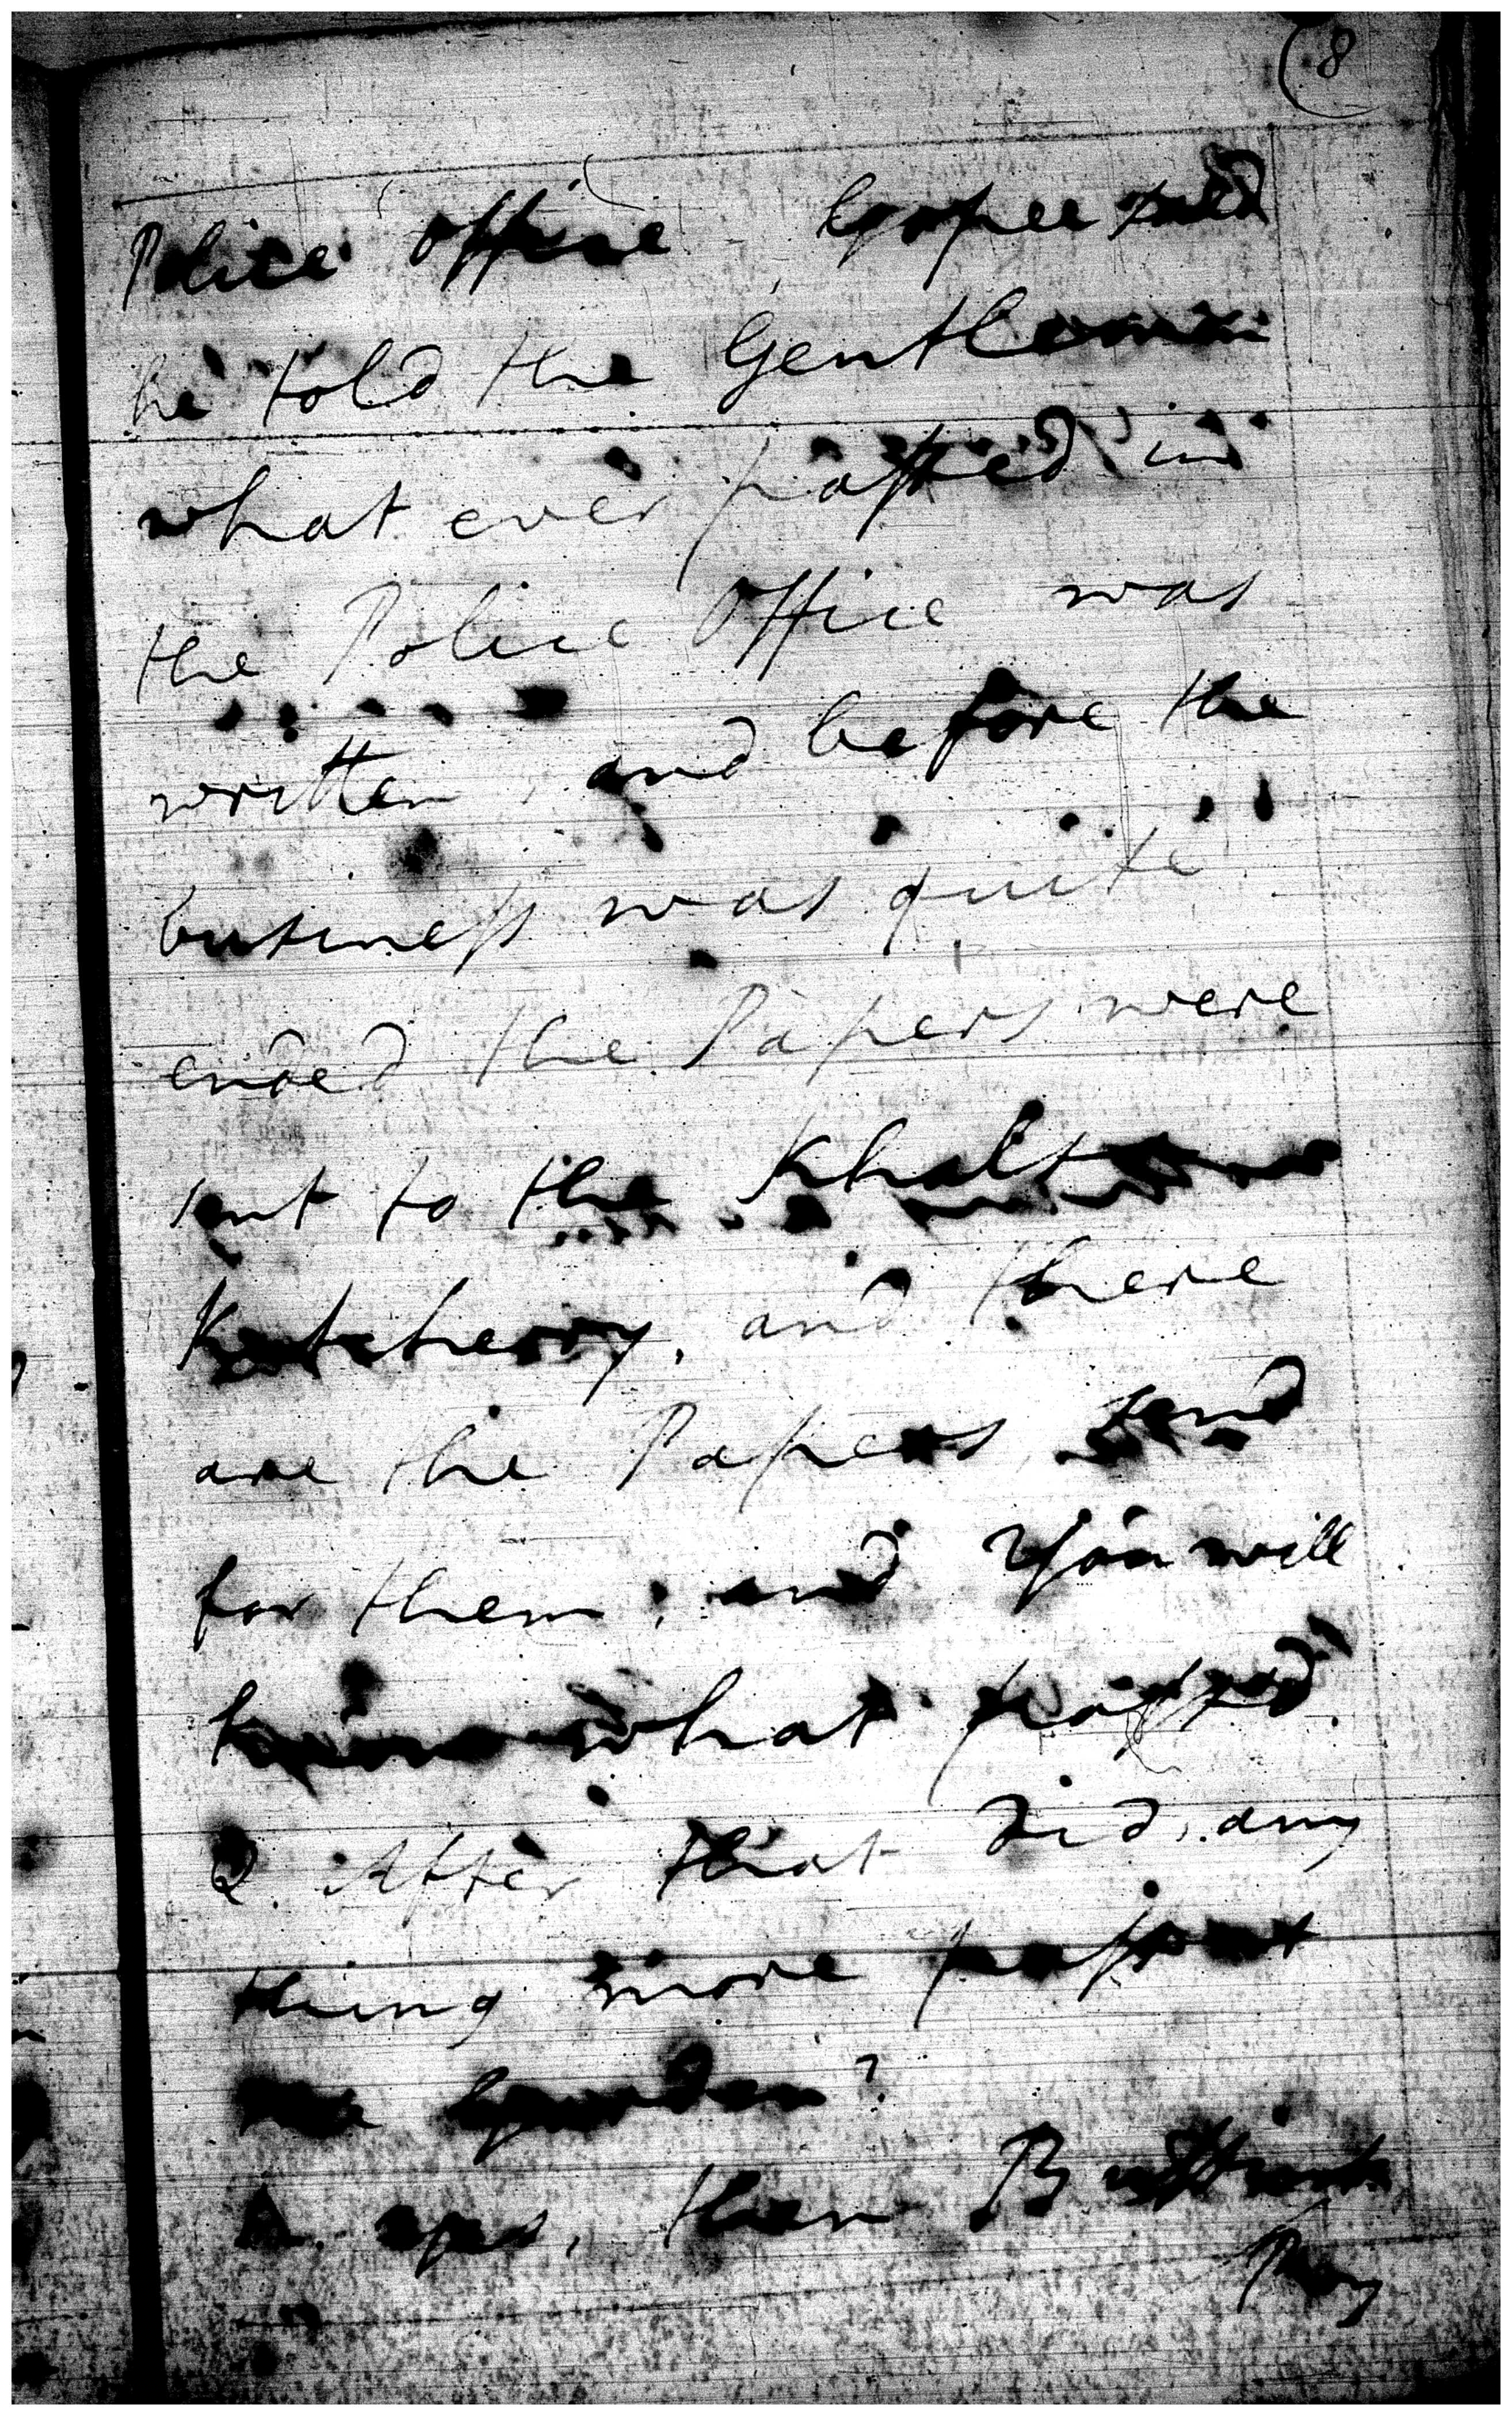 (8
Police Office, Gopee said
he told the Gentleman
what ever passed in
the Police Office was
written, and before the
business was quite
ended the Papers were
sent to the Khalsa
Kutcherry, and there
are the Papers, send
for them; and You will
know what passed.
Q. After that did any
thing more pass at
the Garden?
A. yes, then
Roy